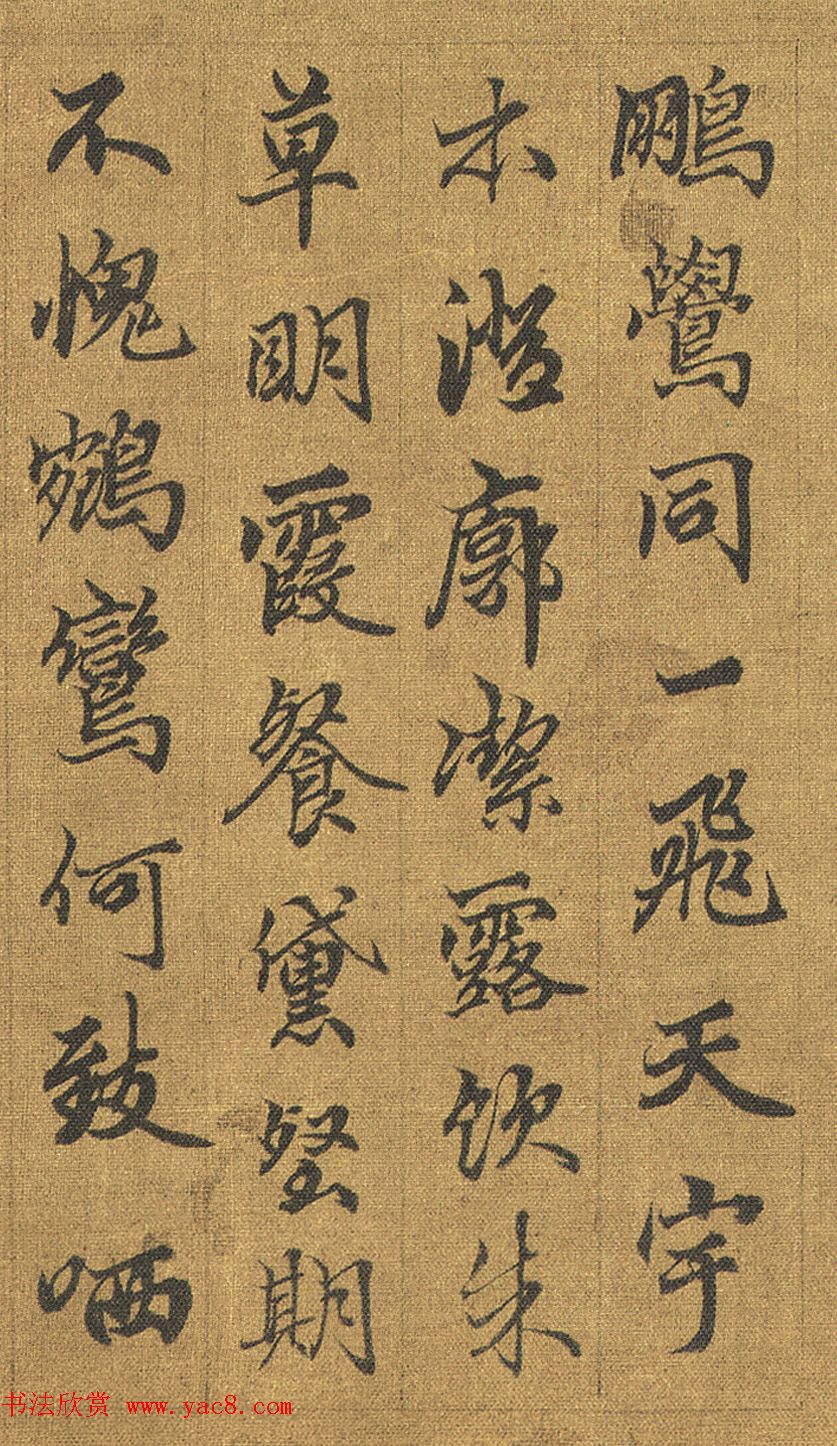 鵬鷽同一飛天宇
本澄廓潔露飲朱
草明霞餐黛堅期
不愧鶴鸞何致哂
书法欣赏 www.yac8.com